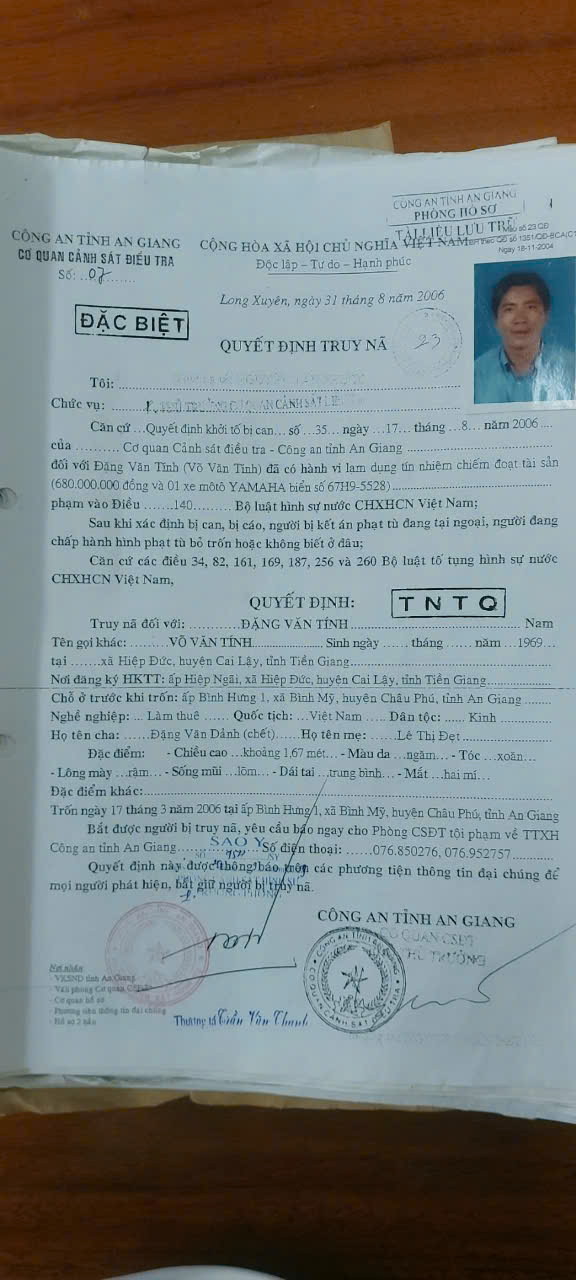 CÔNG AN TỈNH AN GIANG
PHÒNG HỒ SƠ
TÀI LIỆU LƯU TRỮ
Mẫu số 23 QĐ
BH theo QĐ số 1351/QĐ-BCA(C11)
Ngày 18-11-2004
CÔNG AN TỈNH AN GIANG
CƠ QUAN CẢNH SÁT ĐIỀU TRA
Số: ..07........
CỘNG HÒA XÃ HỘI CHỦ NGHĨA VIỆT NAM
Độc lập – Tự do – Hạnh phúc
Long Xuyên, ngày 31 tháng 8 năm 2006
ĐẶC BIỆT
QUYẾT ĐỊNH TRUY NÃ
23
Tôi:
Chức vụ: CƠ QUAN CẢNH SÁT
Căn cứ ...Quyết định khởi tố bị can... số ...35... ngày ...17... tháng ...8... năm 2006 ....
của .......... Cơ quan Cảnh sát điều tra - Công an tỉnh An Giang
đối với Đặng Văn Tính (Võ Văn Tính) đã có hành vi lạm dụng tín nhiệm chiếm đoạt tài sản
(680.000.000 đồng và 01 xe môtô YAMAHA biển số 67H9-5528)
phạm vào Điều .......140.......... Bộ luật hình sự nước CHXHCN Việt Nam;
Sau khi xác định bị can, bị cáo, người bị kết án phạt tù đang tại ngoại, người đang
chấp hành hình phạt tù bỏ trốn hoặc không biết ở đâu;
Căn cứ các điều 34, 82, 161, 169, 187, 256 và 260 Bộ luật tố tụng hình sự nước
CHXHCN Việt Nam,
QUYẾT ĐỊNH:
TNTQ
Truy nã đối với: ..........ĐẶNG VĂN TÍNH.......... Nam
Tên gọi khác: ........VÕ VĂN TÍNH.......... Sinh ngày ...... tháng ...... năm ...1969...
tại ......xã Hiệp Đức, huyện Cai Lậy, tỉnh Tiền Giang
Nơi đăng ký HKTT: ấp Hiệp Ngãi, xã Hiệp Đức, huyện Cai Lậy, tỉnh Tiền Giang
Chỗ ở trước khi trốn: ấp Bình Hưng 1, xã Bình Mỹ, huyện Châu Phú, tỉnh An Giang
Nghề nghiệp: ... Làm thuê ...... Quốc tịch: ...Việt Nam ..... Dân tộc: ...... Kinh
Họ tên cha: .....Đặng Văn Dảnh (chết)..... Họ tên mẹ: ......Lê Thị Đẹt
Đặc điểm: - Chiều cao ...khoảng 1,67 mét... - Màu da ...ngăm... - Tóc ...xoăn...
- Lông mày ...rậm... - Sống mũi ...lõm... - Dái tai ...trung bình... - Mắt ...hai mí...
Đặc điểm khác:
Trốn ngày 17 tháng 3 năm 2006 tại ấp Bình Hưng 1, xã Bình Mỹ, huyện Châu Phú, tỉnh An Giang
Bắt được người bị truy nã, yêu cầu báo ngay cho Phòng CSĐT tội phạm về TTXH
Công an tỉnh An Giang.......... Số điện thoại: ......076.850276, 076.952757
SAO Y
Quyết định này được thông báo trên các phương tiện thông tin đại chúng để
mọi người phát hiện, bắt giữ người bị truy nã.
CÔNG AN TỈNH AN GIANG
CƠ QUAN CSĐT
THỦ TRƯỞNG
CÔNG AN TỈNH AN GIANG
CƠ QUAN CẢNH SÁT ĐIỀU TRA
Nơi nhận
- VKSND tỉnh An Giang
- Văn phòng Cơ quan CSĐT
- Cơ quan hồ sơ
- Phương tiện thông tin đại chúng
- Hồ sơ 2 bản
Thượng tá Trần Văn Thanh